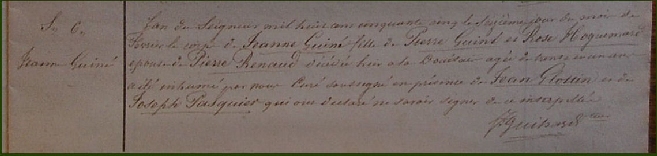 S. 6.
Jeanne Guiné
L'an du Seigneur mil huit cent cinquante cinq le seizième jour du mois de
Février le corps de Jeanne Guiné fille de Pierre Guiné et Rose Hoguemard
épouse de Pierre Renaud décédée hier à la agée de trente
a été inhumé par nous Curé soussigné en présence de Jean Glottin et de
Joseph Pasquier qui ont déclaré ne savoir signer de ce